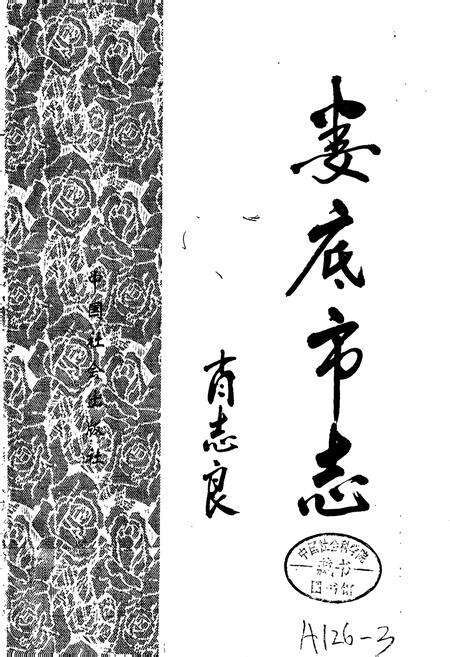 娄底市志
肖志良
中國社会出版社
中国社会科学院
藏书
图书馆
A126-3